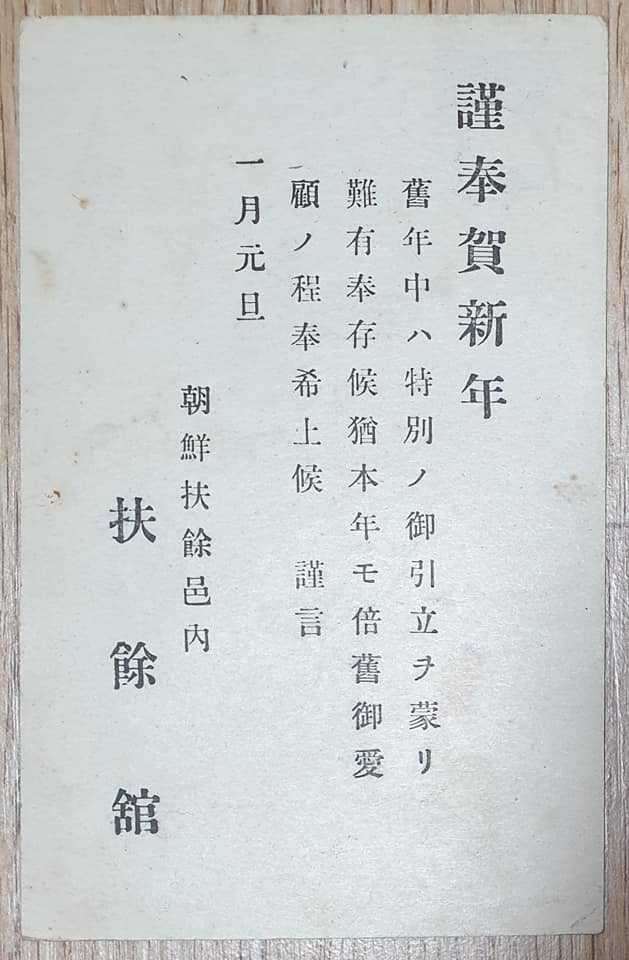 謹奉賀新年
舊年中ハ特別ノ御引立ヲ蒙リ
難有奉存候猶本年モ倍舊御愛
顧ノ程奉希上候 謹言
一月元旦
朝鮮扶餘邑內
扶餘舘